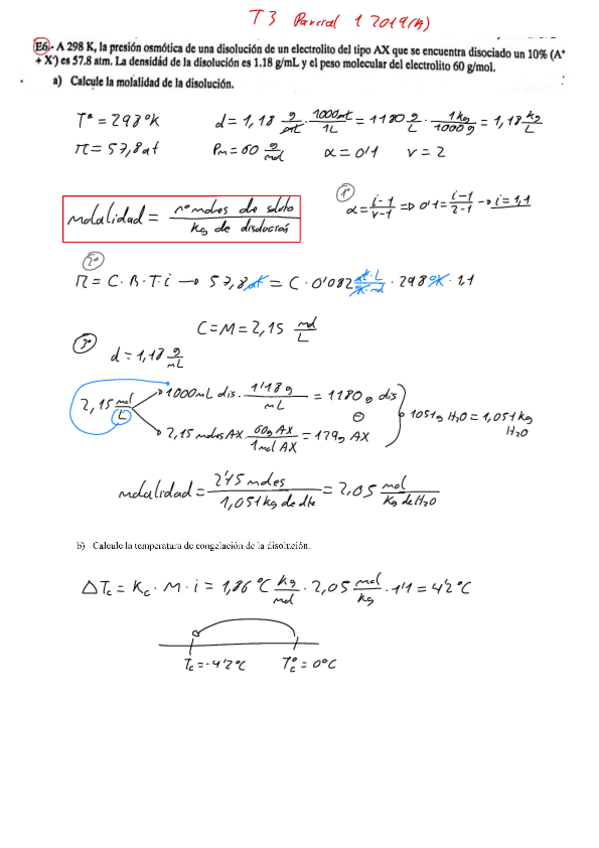 T3 Parcial 1 2019(A)
E6.- A 298 K, la presión osmótica de una disolución de un electrolito del tipo AX que se encuentra disociado un 10% (A⁺
+ X⁻) es 57.8 atm. La densidad de la disolución es 1.18 g/mL y el peso molecular del electrolito 60 g/mol.
a) Calcule la molalidad de la disolución.
Tª = 298ºK d = 1,18 g/mL · 1000mL/1L = 1180 g/L · 1kg/1000g = 1,18 kg/L
π = 57,8 at Pm = 60 g/mol α = 0'1 ν = 2
molalidad = nº moles de soluto / kg de disolución
1º α = i-1/ν-1 => 0'1 = i-1/2-1 → i = 1,1
2º
π = C·R·T·i → 57,8at = C · 0'082 at·L/ºK·mol · 298ºK · 1,1
C = M = 2,15 mol/L
3º d = 1,18 g/mL
2,15 mol/L
1000mL dis. · 1'18g/mL = 1180g dis
⊖
2,15 moles AX · 60g AX/1mol AX = 129g AX
1051g H₂O = 1,051kg H₂O
molalidad = 2'15 moles / 1,051kg de dte = 2,05 mol/kg de H₂O
b) Calcule la temperatura de congelación de la disolución.
ΔTc = Kc · M · i = 1,86 ºC kg/mol · 2,05 mol/kg · 1'1 = 4'2ºC
Tc = -4'2ºC Tcº = 0ºC